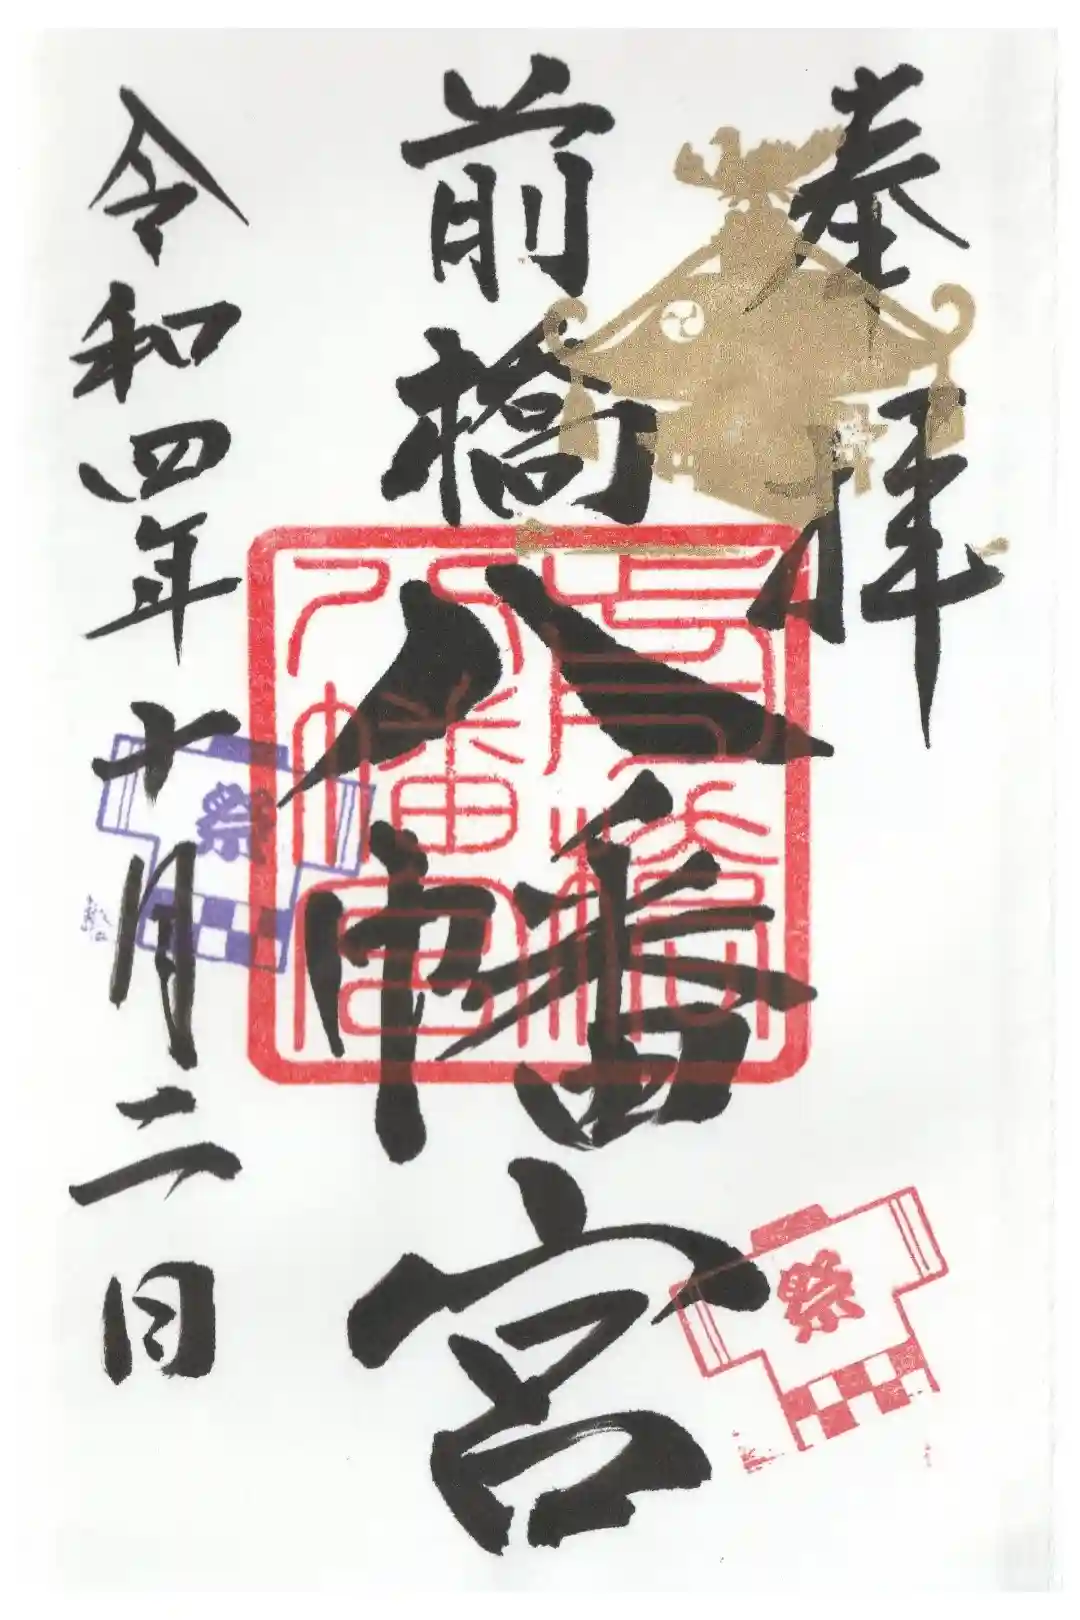 奉拝
前橋八幡宮
前橋
八幡宮
令和四年十月二日
祭
祭